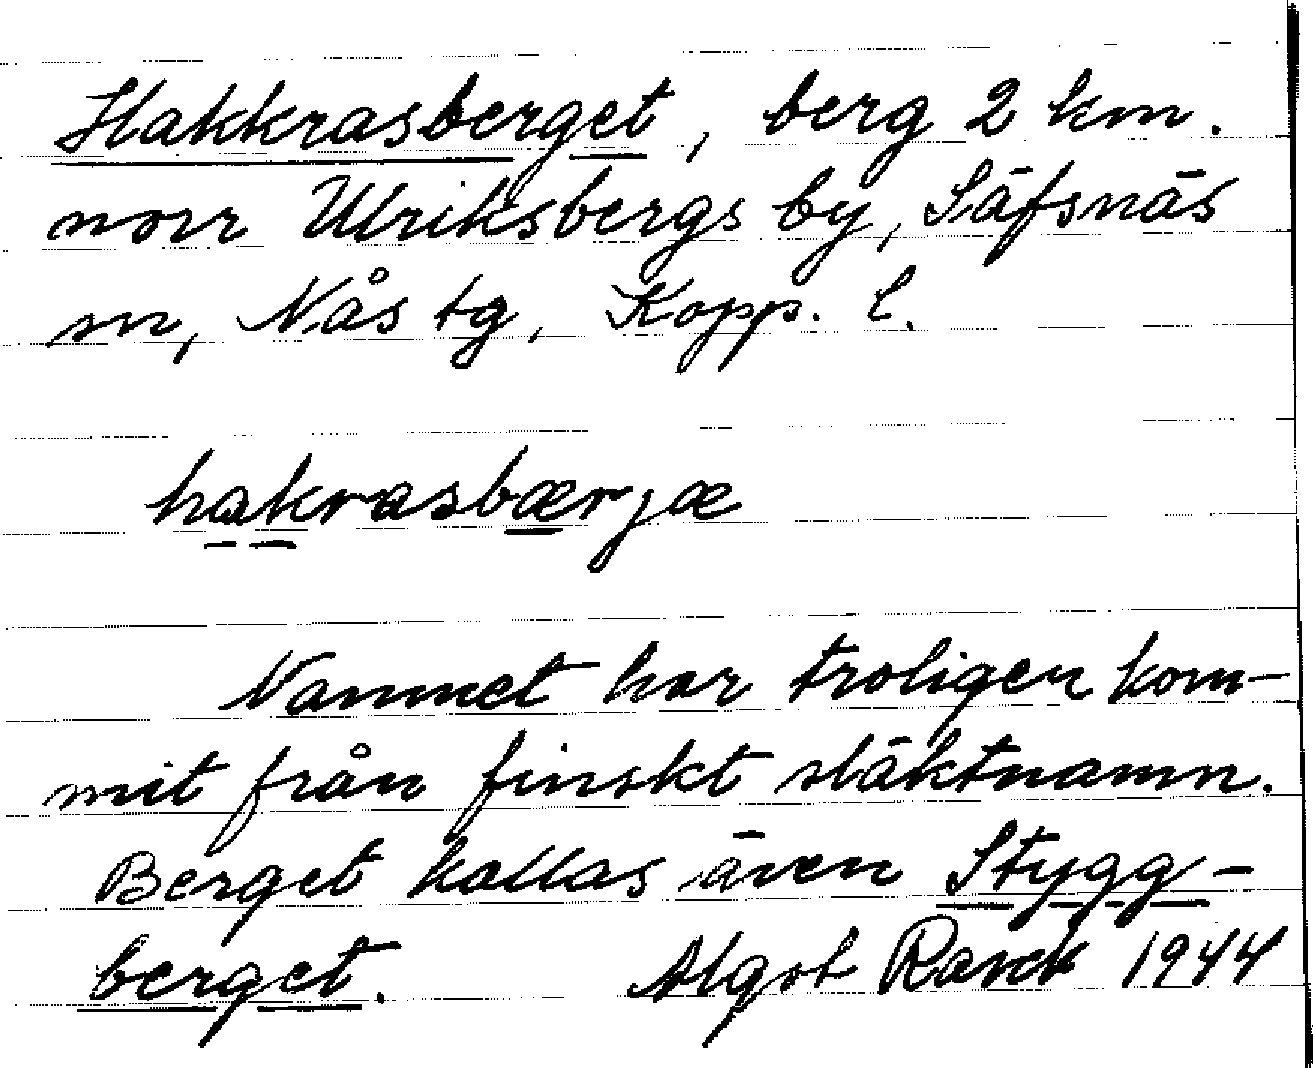 Hakkrasberget, berg 2 km.
norr Ulriksbergs by, Säfsnäs
sn, Nås tg, Kopp. l.
hakrasbærjæ
Namnet har troligen kom-
mit från finskt släktnamn.
Berget kallas även Stygg-
berget. Algot Rask 1944